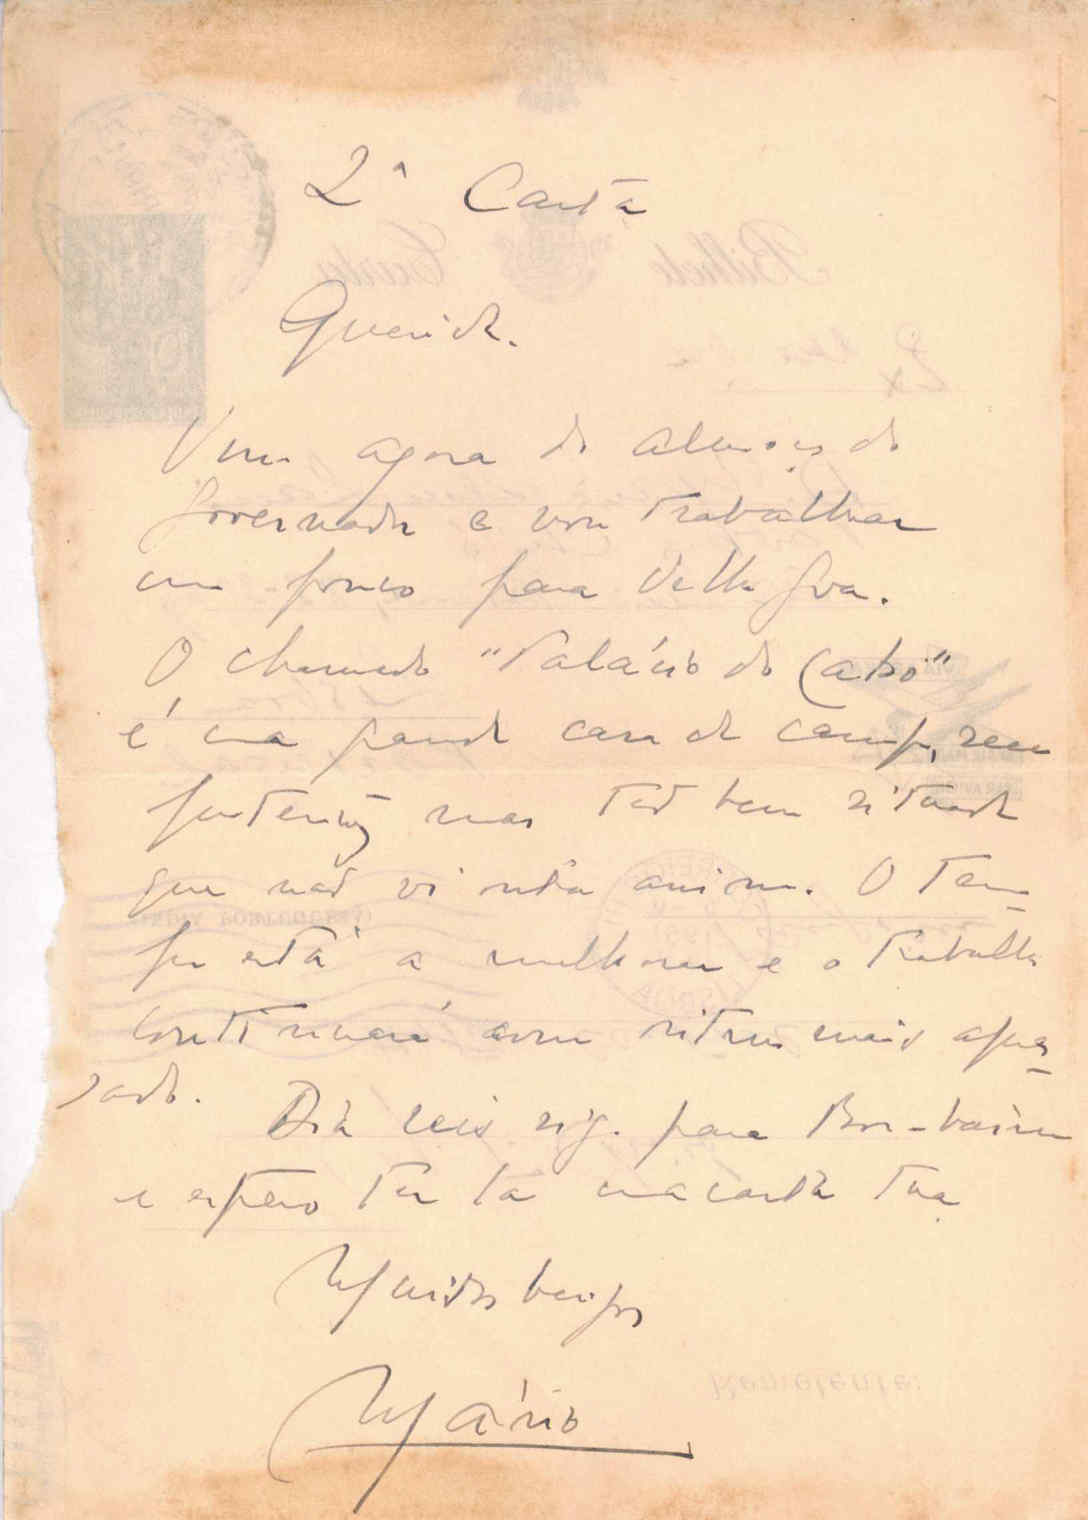 2ª Carta
Querida.
Vim agora do almoço do
Governador e vou trabalhar
um pouco para Velha Goa.
O chamado "Palácio do Cabo"
é uma grande casa de campo, sem
pretensões mas tão bem situada
que não vi outra assim. O tem-
po está a melhorar e o trabalho
continuará com ritmo mais apres-
sado.
Dia seis sigo para Bom-baim
e espero ter lá uma carta tua
Muitos beijos
Mário